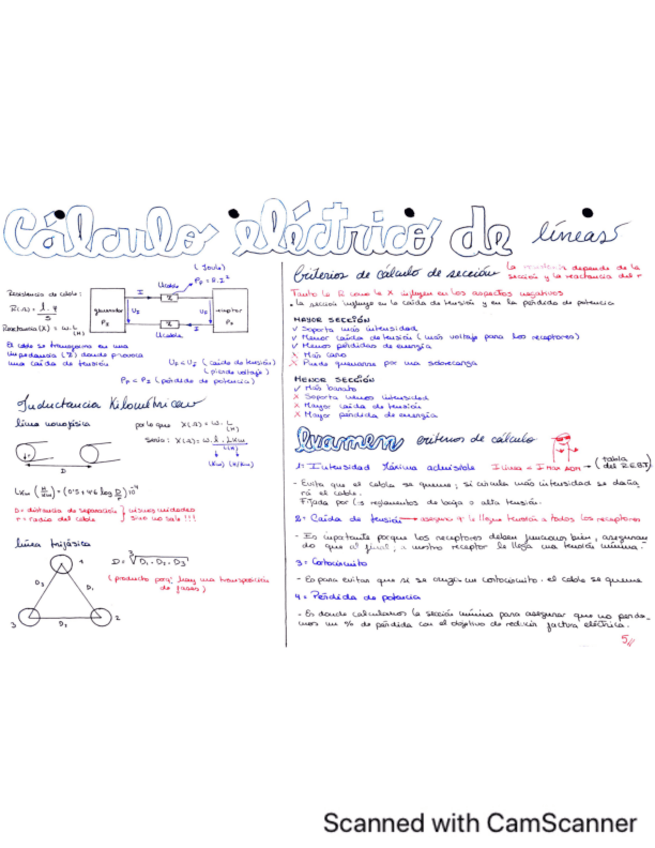 Cálculo eléctrico de líneas
Resistencia de cable:
R(Ω) = l · φ / S
Reactancia (X) = ω · L (H)
( Joule )
Pp = R · I²
I
Ucable
generador
PG
UG
UR
receptor
PR
Z
Z
I
Ucable
El cable se transforma en una
impedancia (Z) donde provoca
una caída de tensión
( caída de tensión )
( pierde voltaje )
( pérdida de potencia )
Inductancia Kilométrica
línea monofásica
por lo que X(Ω) = ω · L (H)
sería: X(Ω) = ω · l · LKm
(Km) (H/Km)
r
D
LKm (H/Km) = (0'5 + 4'6 log D/r) 10⁻⁴
D = distancia de separación
r = radio del cable
} mismas unidades
sino no sale !!!
línea trifásica
D = ∛D₁ · D₂ · D₃
( producto porq hay una transposición
de fases )
1
D₃
D₁
3
D₂
2
Criterios de cálculo de sección
La reactancia depende de la
sección y la reactancia del
Tanto la R como la X influyen en los aspectos negativos
• La sección influye en la caída de tensión y en la pérdida de potencia
MAYOR SECCIÓN
✓ Soporta más intensidad
✓ Menor caída de tensión ( más voltaje para los receptores)
✓ Menos pérdidas de energía
X Más caro
X Puede quemarse por una sobrecarga
MENOR SECCIÓN
✓ Más barato
X Soporta menos intensidad
X Mayor caída de tensión
X Mayor pérdida de energía
Examen criterios de cálculo
1: Intensidad Máxima admisible I línea < I MAX ADM → ( tabla
del R.E.B.T)
- Evita que el cable se queme, si circula más intensidad se daña
rá el cable.
Fijada por los reglamentos de baja o alta tensión.
2: Caída de tensión → asegura q le llegue tensión a todos los receptores
- Es importante porque los receptores deben funcionar bien, aseguran
do que al final, a nuestro receptor le llega una tensión mínima.
3: Cortocircuito
- Es para evitar que si se cruza un cortocircuito, el cable se queme
4: Pérdida de potencia
- Es donde calculamos la sección mínima para asegurar que no perde_
mos un % de pérdida con el objetivo de reducir factura eléctrica.
Scanned with CamScanner